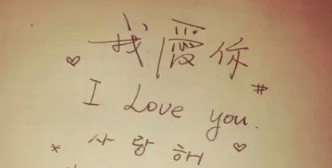 我愛你
I Love you.
사랑해